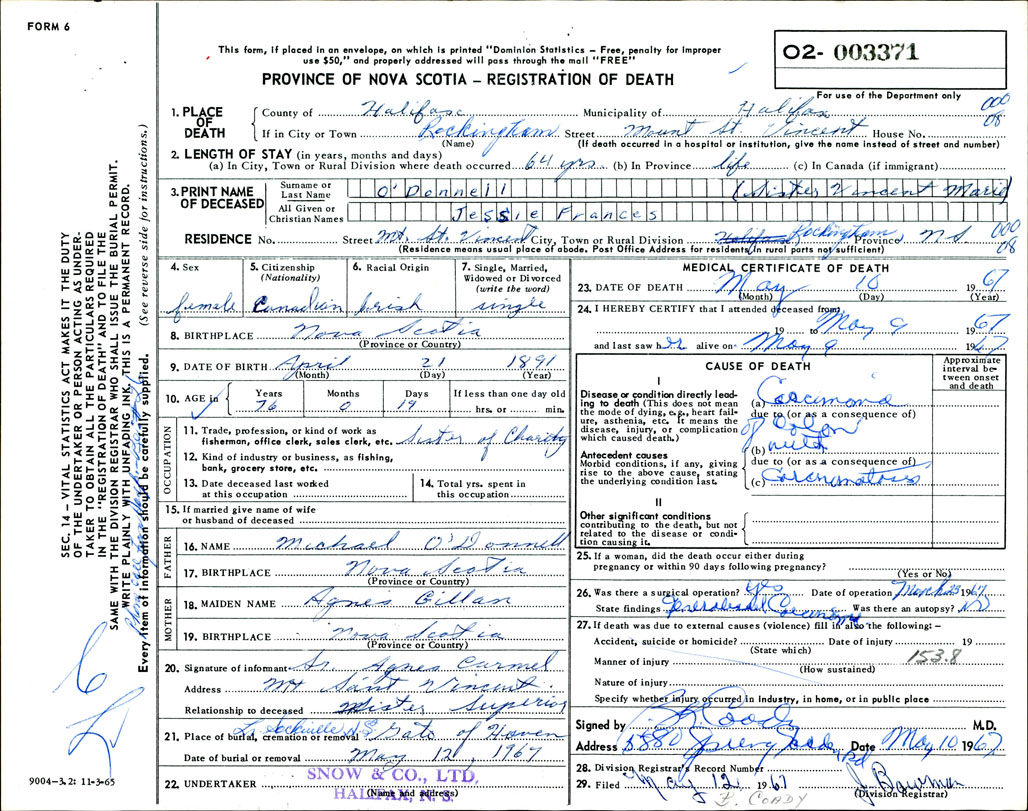 FORM 6
This form, if placed in an envelope, on which is printed "Dominion Statistics – Free, penalty for improper
use $50," and properly addressed will pass through the mail "FREE"
PROVINCE OF NOVA SCOTIA – REGISTRATION OF DEATH
O2- 003371
For use of the Department only
000
08
1. PLACE OF DEATH
County of Halifax Municipality of Halifax
If in City or Town Rockingham Street Mount St. Vincent House No.
(Name) (If death occurred in a hospital or institution, give the name instead of street and number)
2. LENGTH OF STAY (in years, months and days)
(a) In City, Town or Rural Division where death occurred 64 yrs. (b) In Province life (c) In Canada (if immigrant)
3. PRINT NAME OF DECEASED
Surname or Last Name O'Donnell (Sister Vincent Marie)
All Given or Christian Names Jessie Frances
RESIDENCE No. Street Mt. St. Vincent City, Town or Rural Division Halifax Rockingham Province NS
000
08
(Residence means usual place of abode. Post Office Address for residents in rural parts not sufficient)
4. Sex
female
5. Citizenship
(Nationality)
Canadian
6. Racial Origin
Irish
7. Single, Married,
Widowed or Divorced
(write the word)
single
8. BIRTHPLACE Nova Scotia
(Province or Country)
9. DATE OF BIRTH April 21 1891
(Month) (Day) (Year)
10. AGE in
Years Months Days If less than one day old
76 0 19 hrs. or min.
OCCUPATION
11. Trade, profession, or kind of work as
fisherman, office clerk, sales clerk, etc. Sister of Charity
12. Kind of industry or business, as fishing,
bank, grocery store, etc.
13. Date deceased last worked
at this occupation
14. Total yrs. spent in
this occupation
15. If married give name of wife
or husband of deceased
FATHER
16. NAME Michael O'Donnell
17. BIRTHPLACE Nova Scotia
(Province or Country)
MOTHER
18. MAIDEN NAME Agnes Gillan
19. BIRTHPLACE Nova Scotia
(Province or Country)
20. Signature of informant Sr. Agnes Carmel
Address Mt Saint Vincent
Relationship to deceased Sister Superior
21. Place of burial, cremation or removal Lr. Sackville N.S. Gate of Heaven
Date of burial or removal May 12, 1967
22. UNDERTAKER SNOW & CO., LTD.
HALIFAX, N. S.
(Name and address)
MEDICAL CERTIFICATE OF DEATH
23. DATE OF DEATH May 10 1967
(Month) (Day) (Year)
24. I HEREBY CERTIFY that I attended deceased from
19 to May 9 1967
and last saw her alive on May 9 1967
CAUSE OF DEATH
Approximate
interval be-
tween onset
and death
I
Disease or condition directly lead-
ing to death (This does not mean
the mode of dying, e.g., heart fail-
ure, asthenia, etc. It means the
disease, injury, or complication
which caused death.)
(a) Carcinoma
due to (or as a consequence of)
of Colon
(b) with
Antecedent causes
Morbid conditions, if any, giving
rise to the above cause, stating
the underlying condition last.
due to (or as a consequence of)
(c) Carcinomatosis
II
Other significant conditions
contributing to the death, but not
related to the disease or condi-
tion causing it.
25. If a woman, did the death occur either during
pregnancy or within 90 days following pregnancy?
(Yes or No)
26. Was there a surgical operation? Yes Date of operation March 1967
State findings Generalized Carcinoma Was there an autopsy? No
27. If death was due to external causes (violence) fill in also the following:–
Accident, suicide or homicide? Date of injury 19
(State which)
Manner of injury 153.8
(How sustained)
Nature of injury
Specify whether injury occurred in industry, in home, or in public place
Signed by Coady M.D.
Address 5880 Spring Garden Rd Date May 10 1967
28. Division Registrar's Record Number
29. Filed May 12 1967 Bowman
(Division Registrar)
B. COADY
SEC. 14 – VITAL STATISTICS ACT MAKES IT THE DUTY
OF THE UNDERTAKER OR PERSON ACTING AS UNDER-
TAKER TO OBTAIN ALL THE PARTICULARS REQUIRED
IN THE "REGISTRATION OF DEATH" AND TO FILE THE
SAME WITH THE DIVISION REGISTRAR WHO SHALL ISSUE THE BURIAL PERMIT.
WRITE PLAINLY WITH UNFADING INK. THIS IS A PERMANENT RECORD.
Every item of information should be carefully supplied. (See reverse side for instructions.)
9004-3.2: 11-3-65